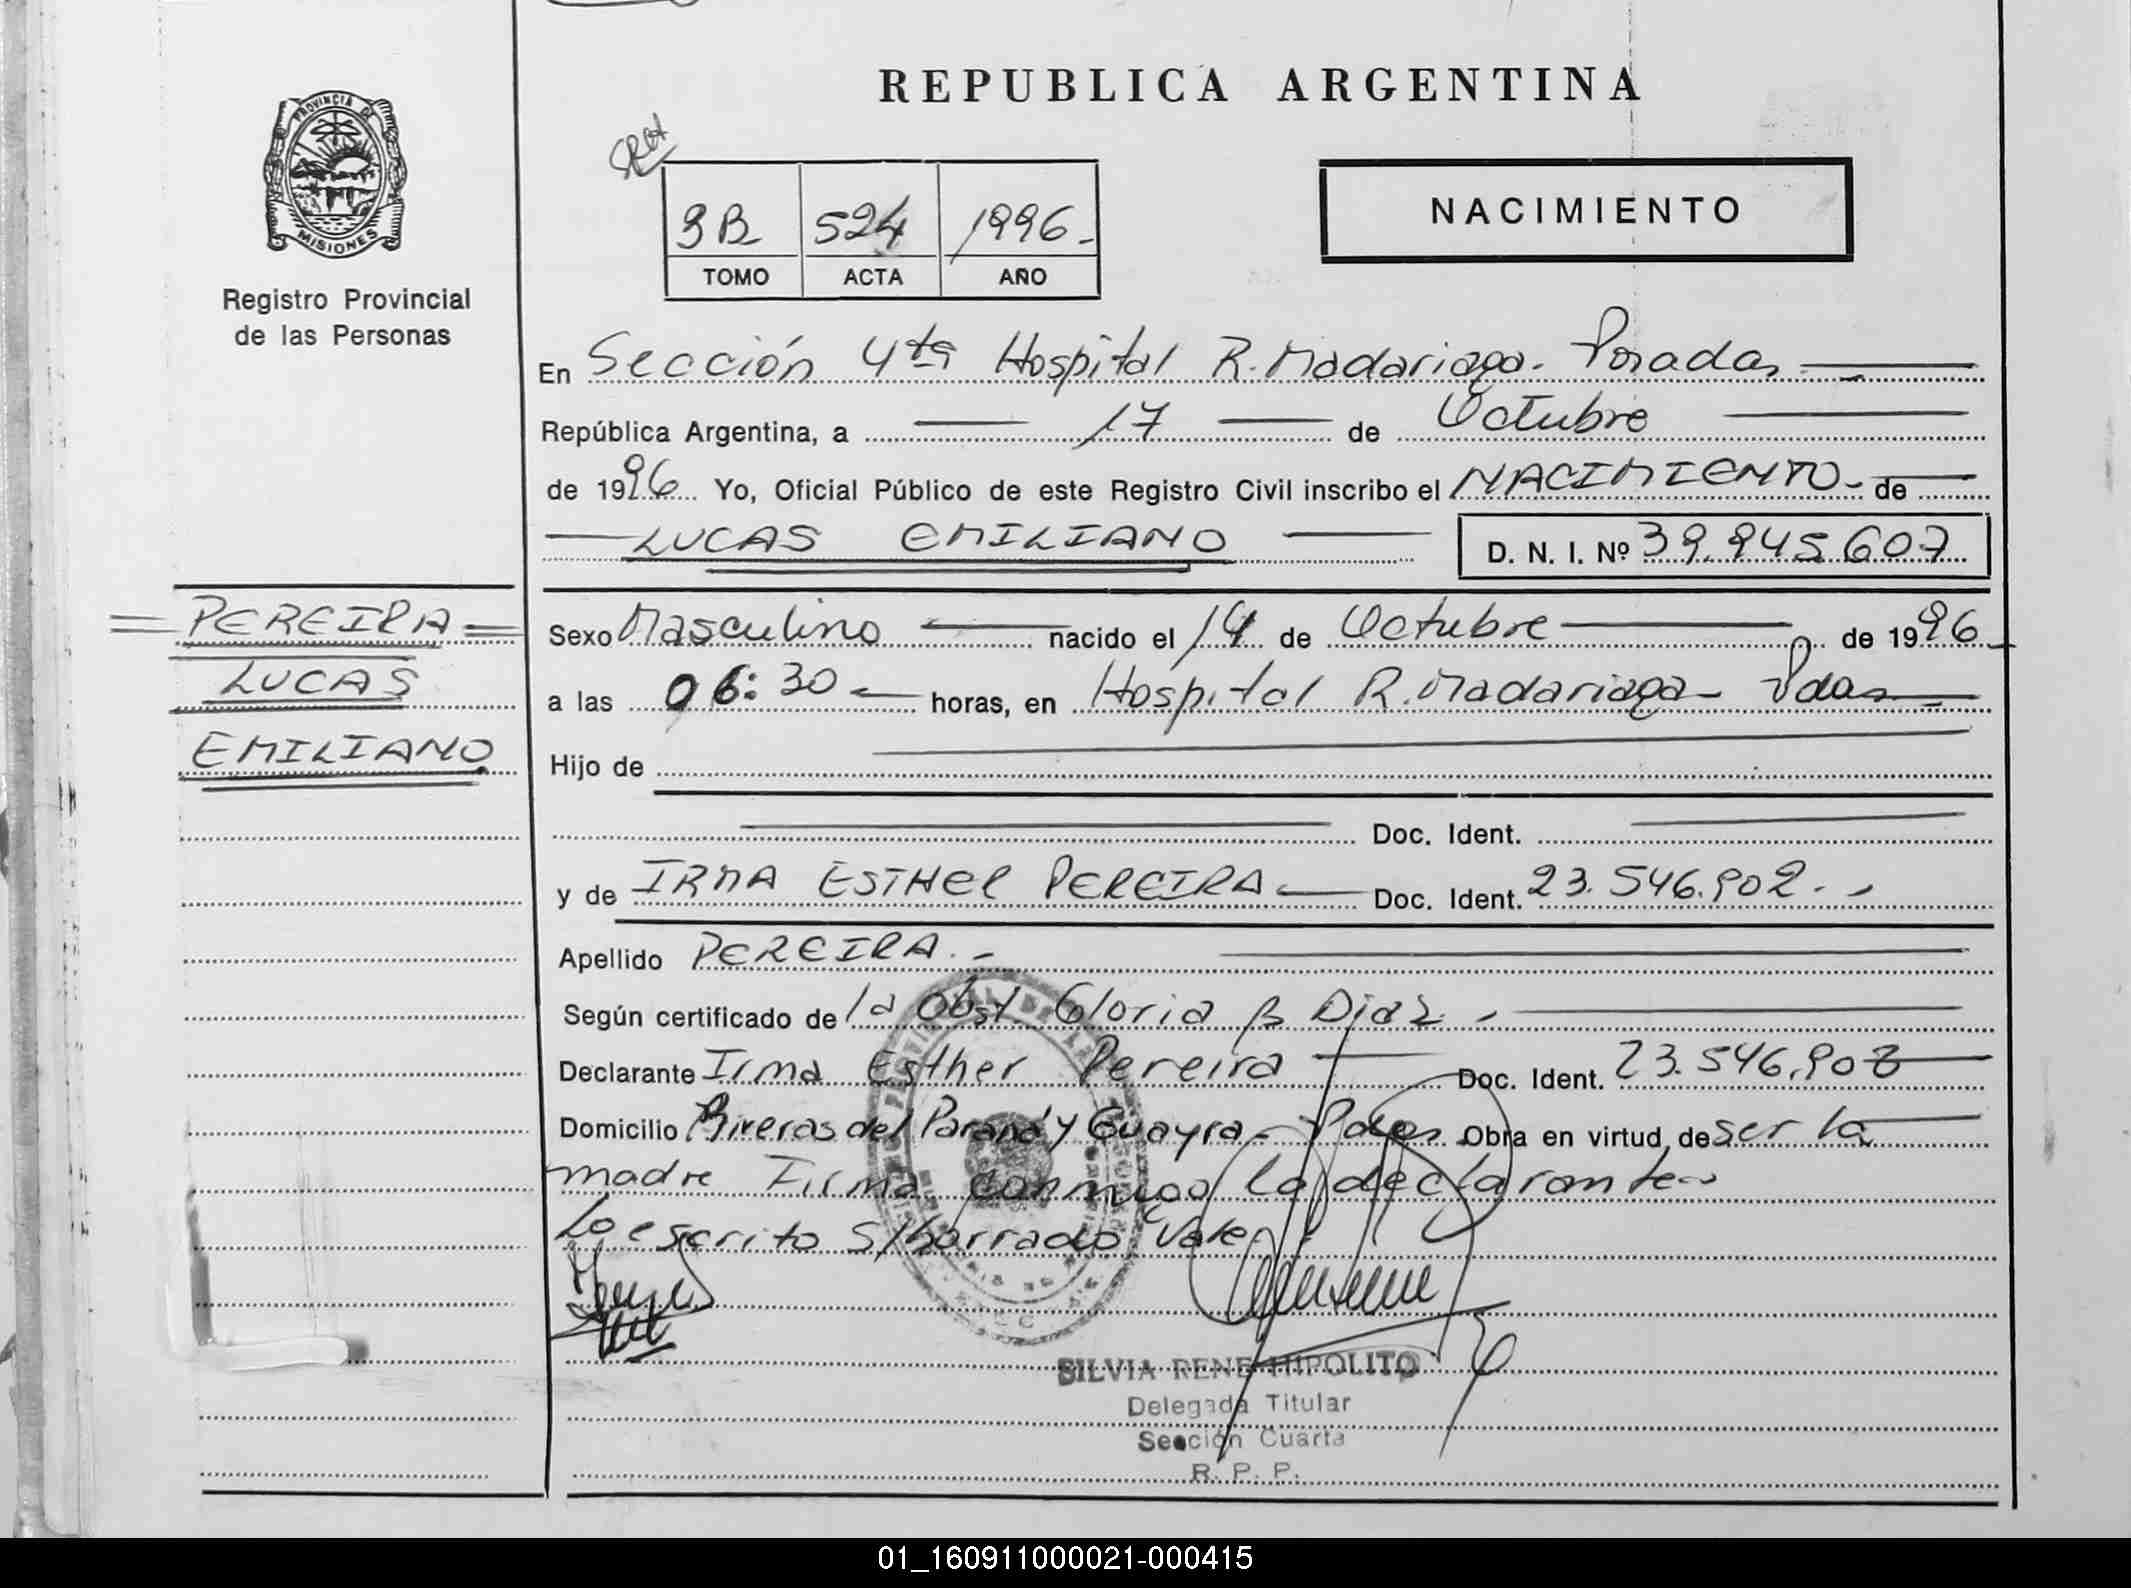 REPUBLICA ARGENTINA
PROVINCIA DE
MISIONES
Registro Provincial
de las Personas
3B 524 1996.-
TOMO ACTA AÑO
NACIMIENTO
En Sección 4ta Hospital R. Madariaga. Posadas
República Argentina, a 17 de Octubre
de 1996 Yo, Oficial Público de este Registro Civil inscribo el NACIMIENTO - de
LUCAS EMILIANO D. N. I. Nº 39.945.607
PEREIRA
LUCAS
EMILIANO
Sexo Masculino nacido el 14 de Octubre de 1996
a las 06:30 horas, en Hospital R. Madariaga - Pdas
Hijo de
Doc. Ident.
y de IRMA ESTHER PEREIRA Doc. Ident. 23.546.902.-
Apellido PEREIRA.-
Según certificado de la Obst. Gloria B Diaz.-
Declarante Irma Esther Pereira Doc. Ident. 23.546.902
Domicilio Riveras del Paraná y Guayra - Pdas Obra en virtud de ser la
madre Firma conmigo la declarante-
Lo escrito S/borrado Vale
SILVIA RENE HIPOLITO
Delegada Titular
Sección Cuarta
R. P. P.
01_160911000021-000415